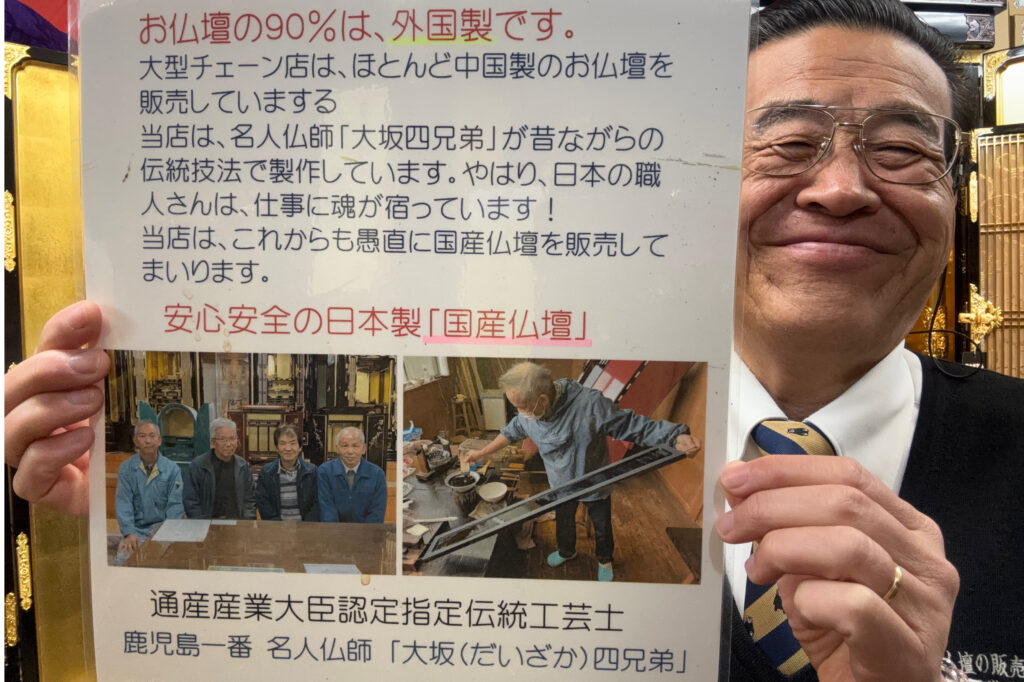 お仏壇の90%は、外国製です。
大型チェーン店は、ほとんど中国製のお仏壇を
販売していまする
当店は、名人仏師「大坂四兄弟」が昔ながらの
伝統技法で製作しています。やはり、日本の職
人さんは、仕事に魂が宿っています！
当店は、これからも愚直に国産仏壇を販売して
まいります。
安心安全の日本製「国産仏壇」
通産産業大臣認定指定伝統工芸士
鹿児島一番 名人仏師 「大坂(だいざか)四兄弟」
壇の販売